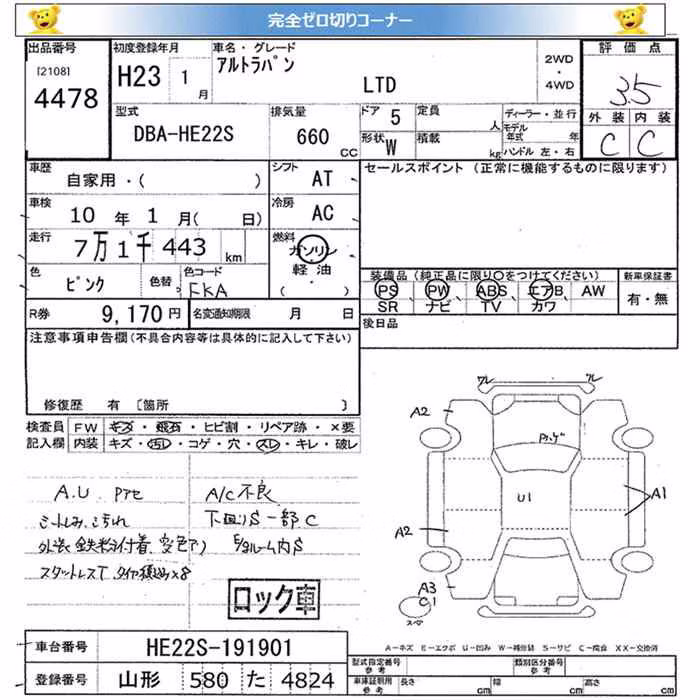 完全ゼロ切りコーナー
出品番号
[2108]
4478
初度登録年月
H23 1月
車名・グレード
アルトラパン
LTD
2WD
・
4WD
評価点
3.5
外装 内装
C C
型式
DBA-HE22S
排気量
660 CC
ドア 5
定員 人
形状 W
積載 kg
ディーラー・並行
モデル年式 年
ハンドル 左・右
車歴
自家用・( )
シフト AT
車検
10年 1月( 日)
冷房 AC
走行
7万1千443 km
燃料
ガソリン
軽油
( )
色
ピンク
色替
色コード
FKA
R券 9,170円
名変通知期限 月 日
セールスポイント (正常に機能するものに限ります)
装備品 (純正品に限り○をつけてください)
PS、PW、ABS、エアB、AW
SR ナビ TV カワ
新車保証書
有・無
後日品
注意事項申告欄(不具合内容等は具体的に記入して下さい)
修復歴 有 [箇所 ]
検査員記入欄
FW キズ・飛石・ヒビ割・リペア跡・×要
内装 キズ・汚レ・コゲ・穴・スレ・キレ・破レ
A.U. PTセ
A/C不良
シートしみ、こげれ
下回りS一部C
外装鉄粉付着、変色アリ
E/gルーム内S
スタットレスT タイヤ積込×8
ロック車
ワレ
ワレ
A2
U1
A1
A2
A3
C1
スペア
A-キズ E-エクボ U-凹み W-補修跡 S-サビ C-腐食 XX-交換済
車台番号 HE22S-191901
登録番号 山形 580 た 4824
型式指定番号
参考
類別区分番号
参考
車庫証明用
参考
長さ cm
幅 cm
高さ cm